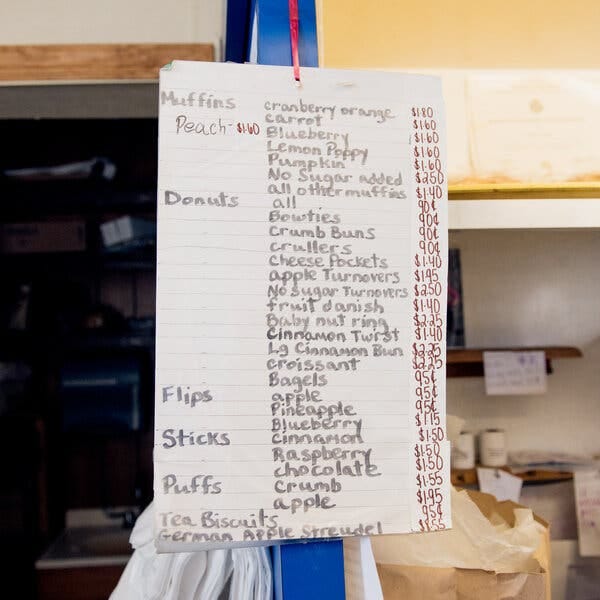 Muffins cranberry orange $1.80
carrot $1.60
Peach - $1.60 Blueberry $1.60
Lemon Poppy $1.60
Pumpkin $1.60
No Sugar added $2.50
all other muffins $1.40
Donuts all 90¢
Bowties 90¢
Crumb Buns 90¢
crullers 90¢
Cheese Pockets $1.40
apple Turnovers $1.95
No Sugar Turnovers $2.50
fruit danish $1.40
Baby nut ring $2.25
Cinnamon Twist $1.40
Lg Cinnamon Bun $2.25
croissant $2.25
Bagels 95¢
Flips apple 95¢
Pineapple 95¢
Blueberry $1.15
Sticks cinnamon $1.50
Raspberry $1.50
chocolate $1.50
Puffs Crumb $1.55
apple $1.95
Tea Biscuits 95¢
German Apple Streudel